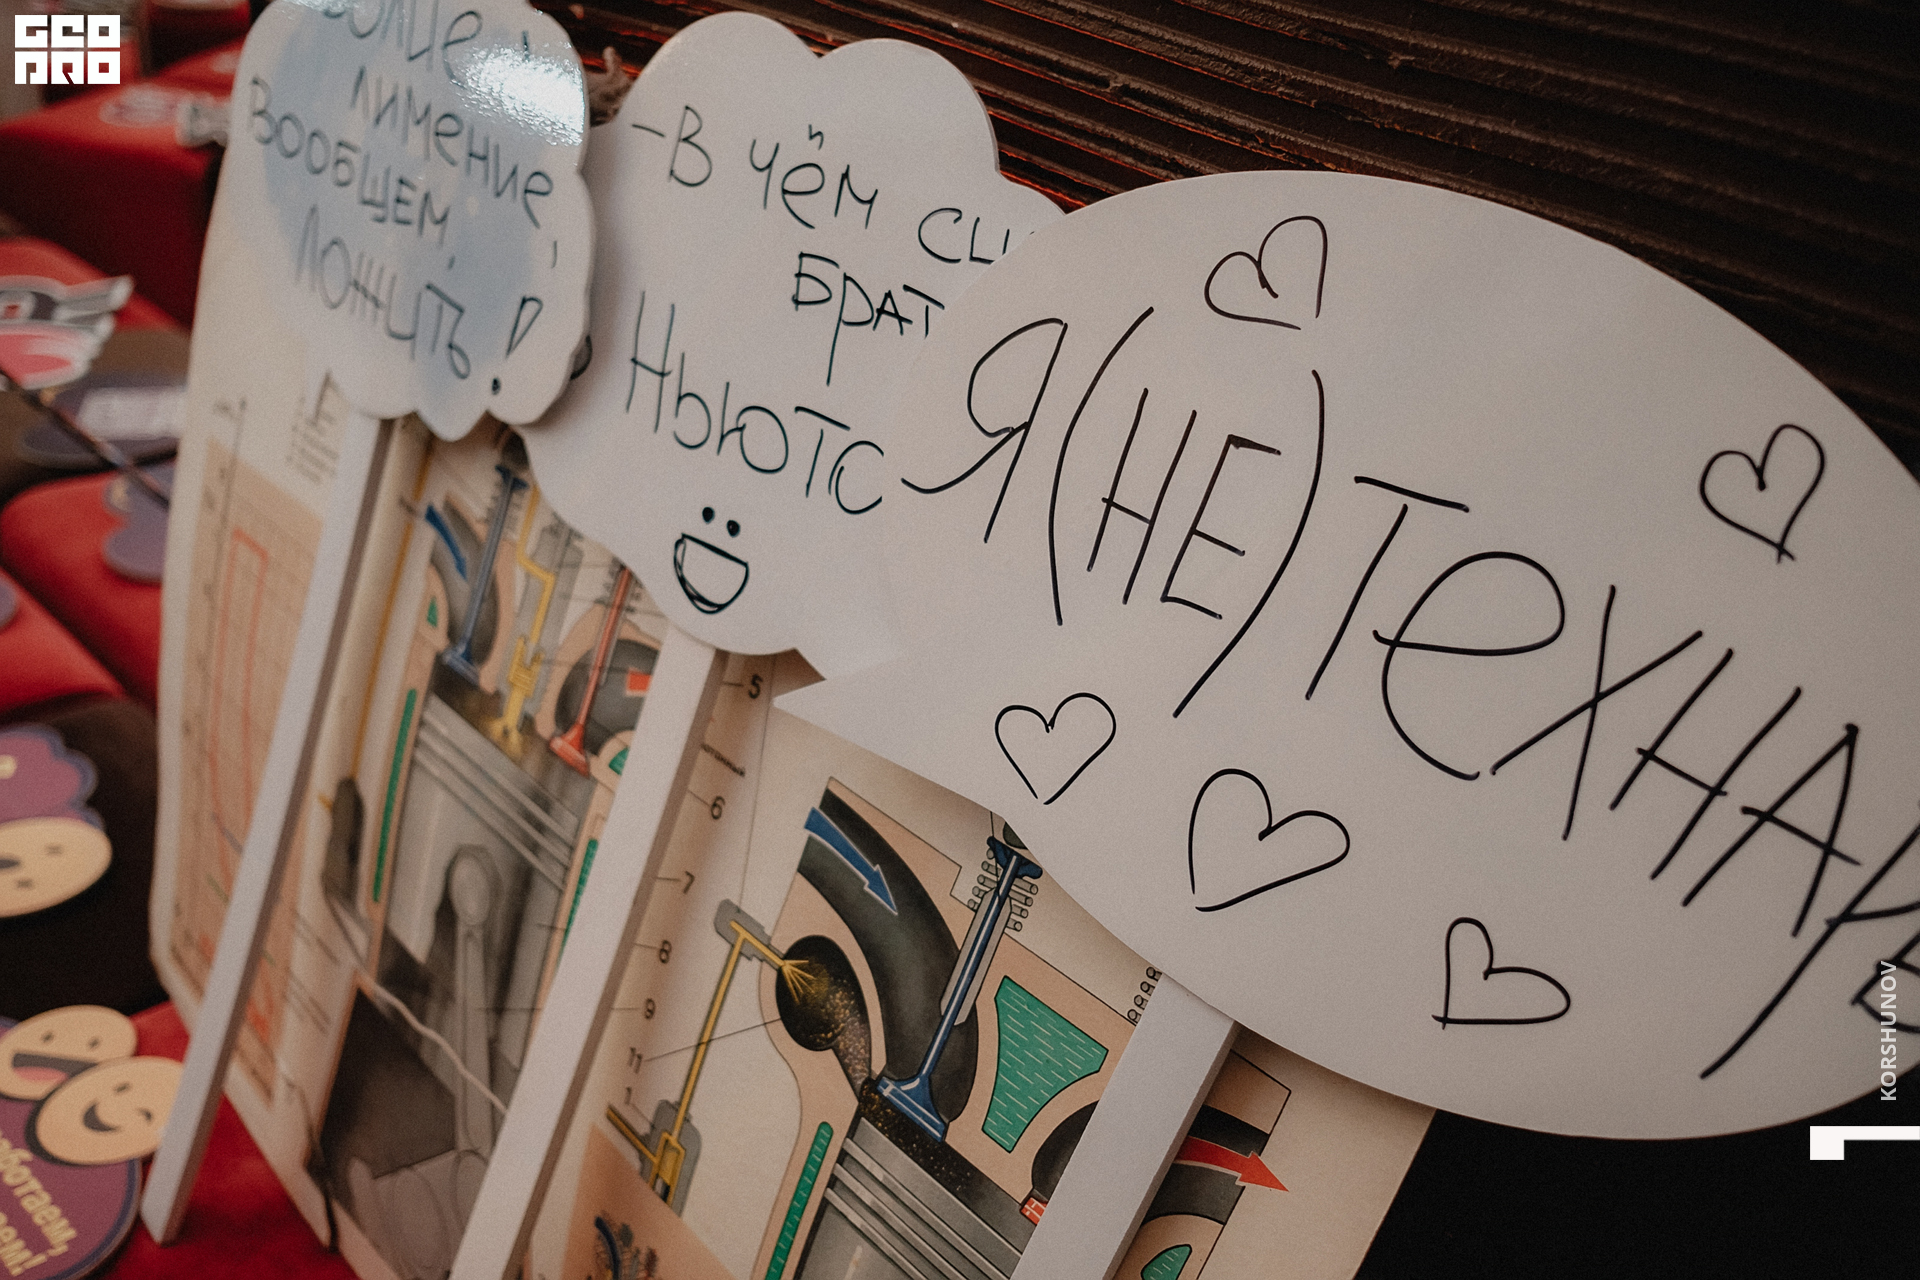 GEO
PRO
лимение,
вообщем,
ложить!
-В чём
брат
Ньютс
Я (не) технарь
5
6
7
8
9
11
KORSHUNOV
1